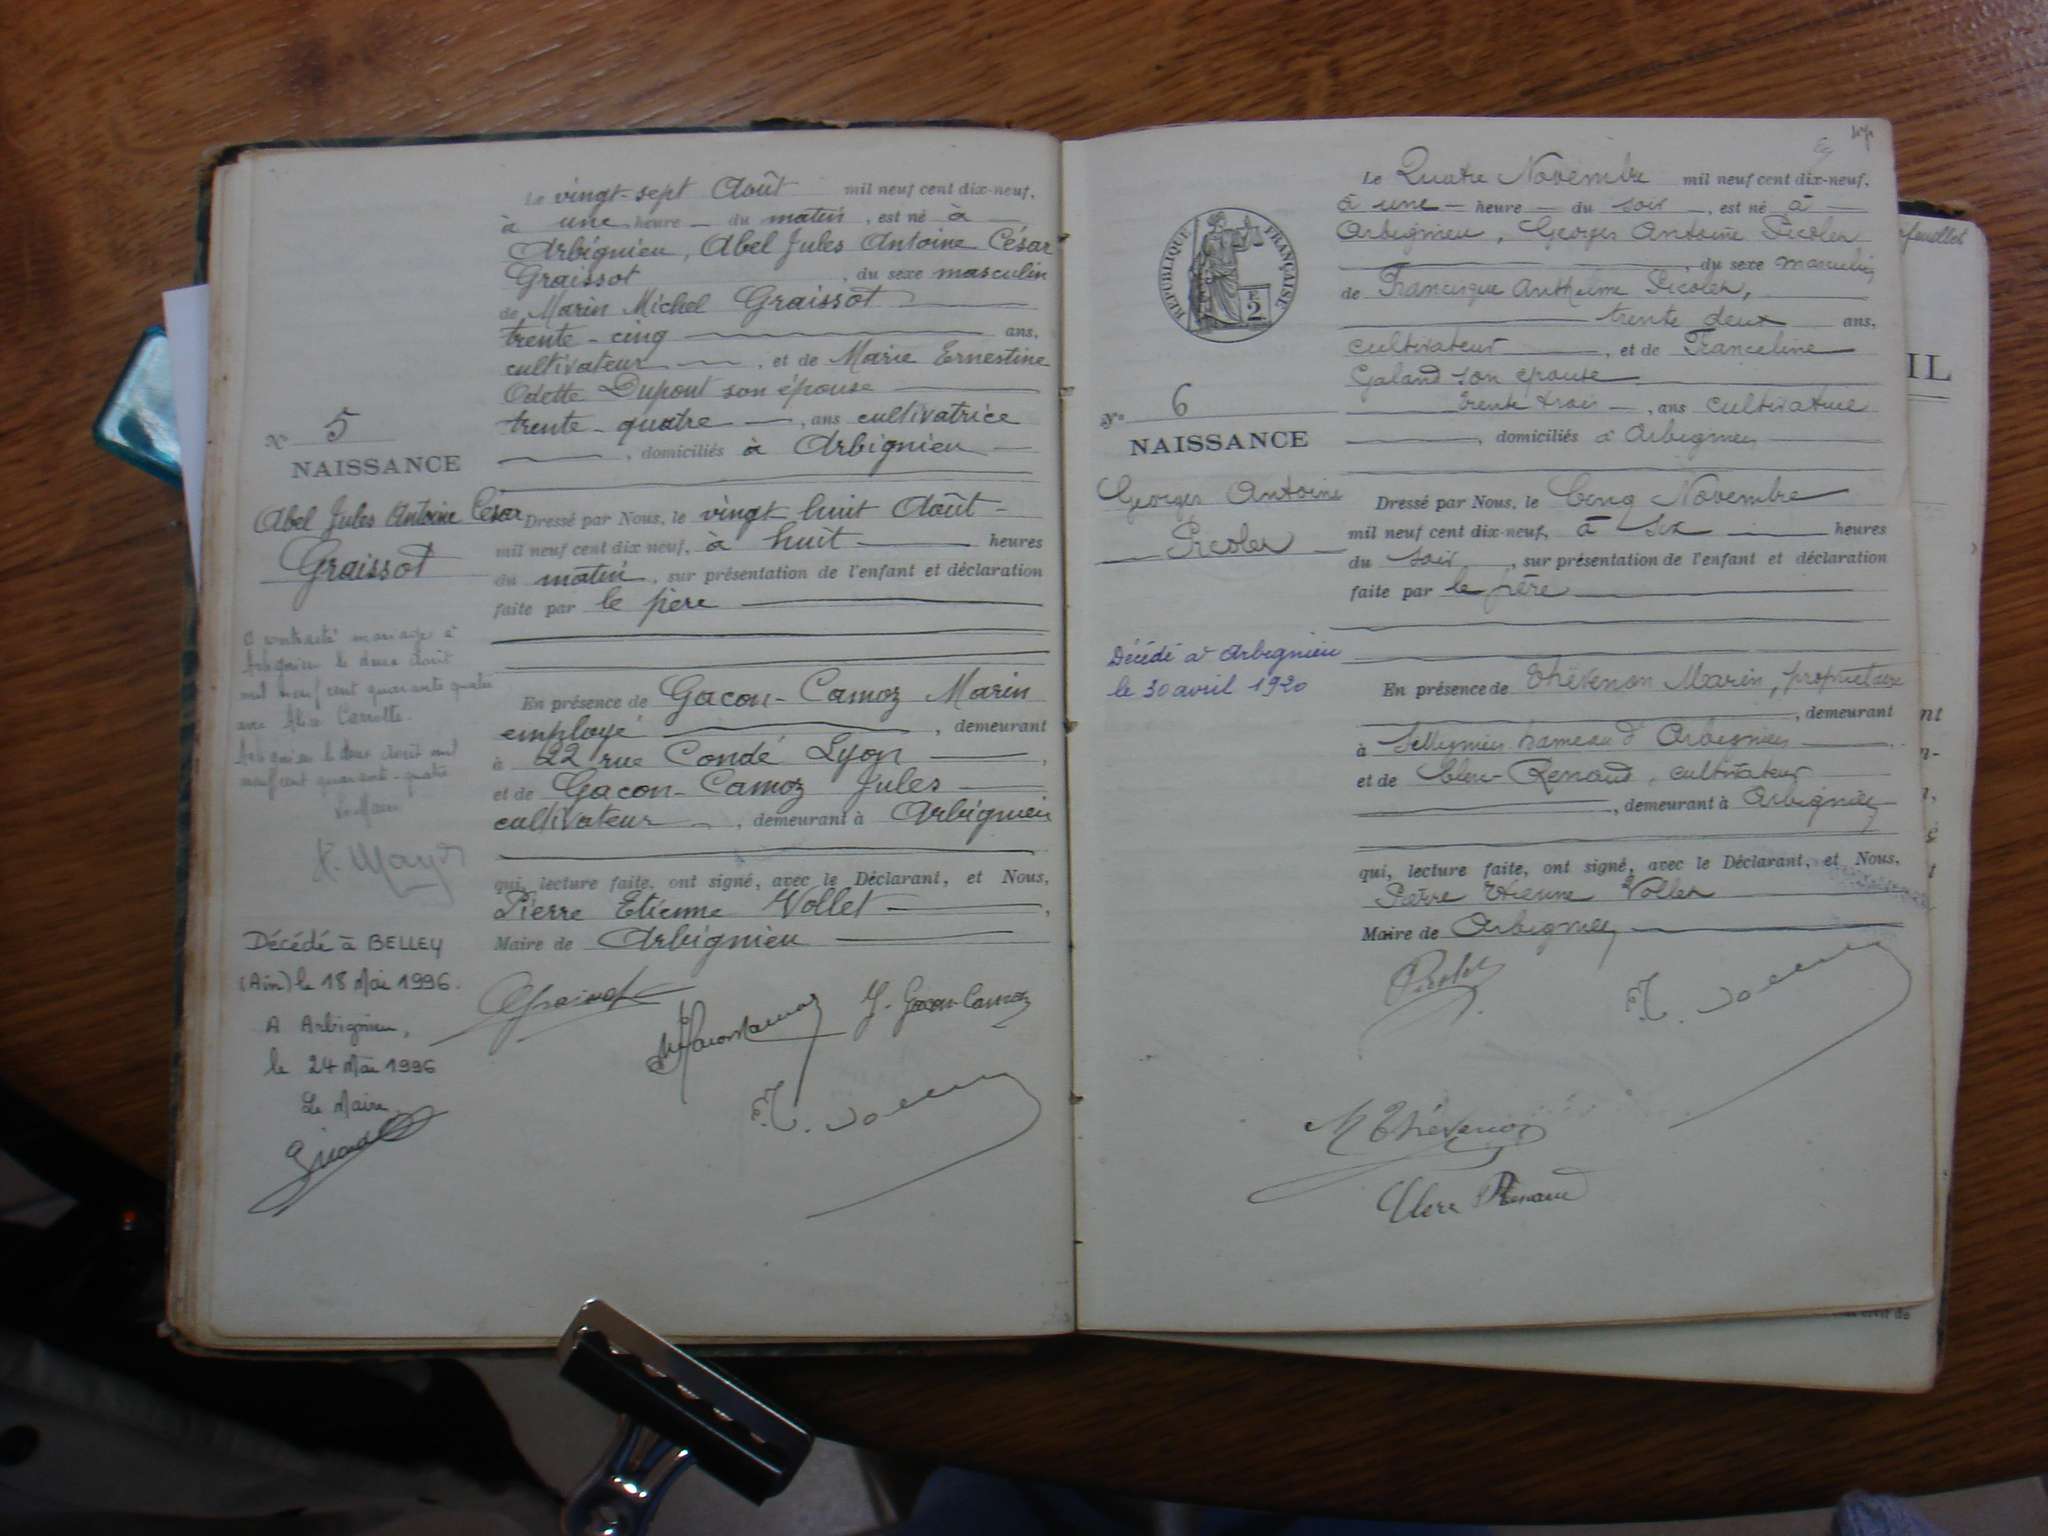 Le vingt-sept Août mil neuf cent dix-neuf,
à une heure du matin, est né à
Arbignieu, Abel Jules Antoine César
Graissot, du sexe masculin
de Marin Michel Graissot
trente-cinq ans,
cultivateur, et de Marie Ernestine
Odette Dupont son épouse
trente-quatre, ans cultivatrice
, domiciliés à Arbignieu
N° 5
NAISSANCE
Abel Jules Antoine César
Graissot
Dressé par Nous, le vingt huit Août
mil neuf cent dix neuf, à huit heures
du matin, sur présentation de l'enfant et déclaration
faite par le père
A contracté mariage à
Arbignieu le deux Août
mil neuf cent quarante quatre
avec Alice
Arbignieu le deux Août mil
neuf cent quarante-quatre
Le Maire
En présence de Gacon-Camoz Marin
employé, demeurant
à 22 rue Condé Lyon,
et de Gacon-Camoz Jules
cultivateur, demeurant à Arbignieu
qui, lecture faite, ont signé, avec le Déclarant, et Nous,
Pierre Etienne Vollet,
Maire de Arbignieu
Décédé à BELLEY
(Ain) le 18 Mai 1996.
A Arbignieu,
le 24 Mai 1996
Le Maire,
J. Gacon-Camoz
Le Quatre Novembre mil neuf cent dix-neuf,
à une heure du soir, est né à
Arbignieu, Georges Antoine Picolet
, du sexe masculin
de Francisque Anthelme Picolet,
trente deux ans,
cultivateur, et de Franceline
Galand son épouse
trente trois, ans cultivatrice
, domiciliés à Arbignieu
RÉPUBLIQUE FRANÇAISE
2
N° 6
NAISSANCE
Georges Antoine
Picolet
Dressé par Nous, le Cinq Novembre
mil neuf cent dix-neuf, à six heures
du soir, sur présentation de l'enfant et déclaration
faite par le père
Décédé à Arbignieu
le 30 avril 1920
En présence de Thévenon Marin, propriétaire
, demeurant
à hameau d'Arbignieu
et de Clerc-Renaud, cultivateur
, demeurant à Arbignieu
qui, lecture faite, ont signé, avec le Déclarant, et Nous,
Pierre Etienne Vollet
Maire de Arbignieu
Picolet
M Thévenon
Clerc Renaud
IL